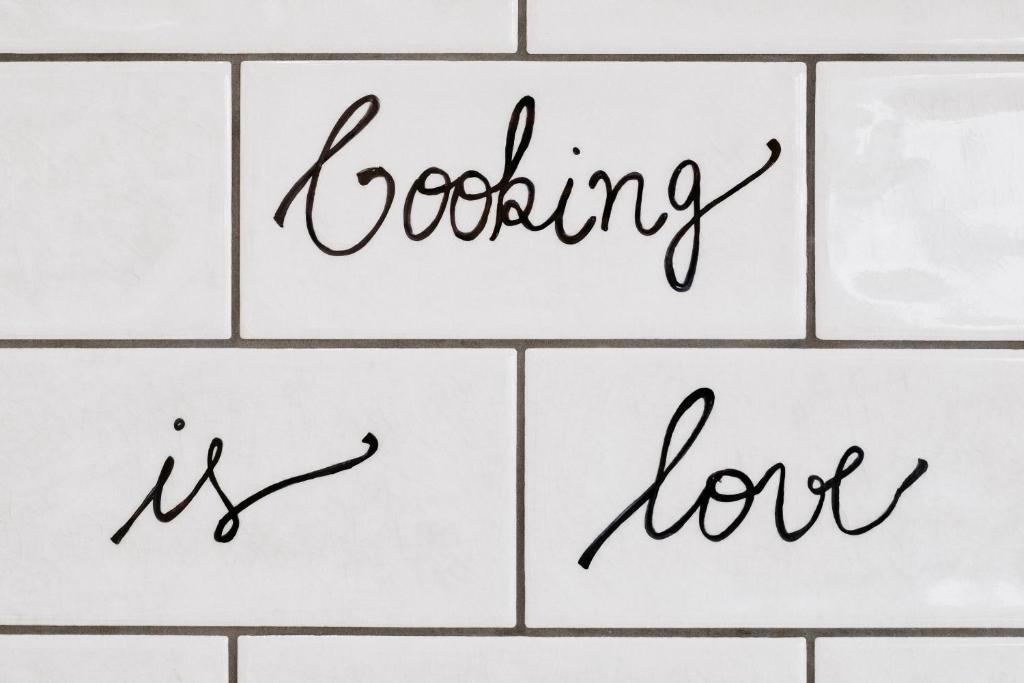 Cooking
is love